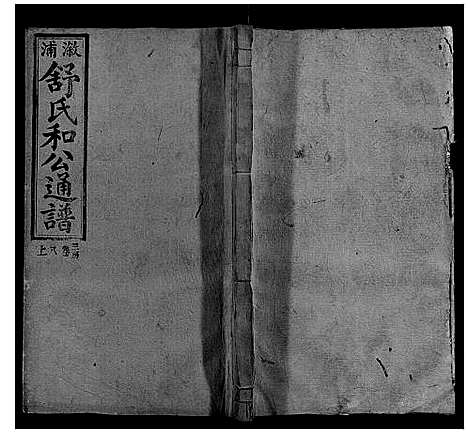 溆浦
舒氏和公通譜
卷八上